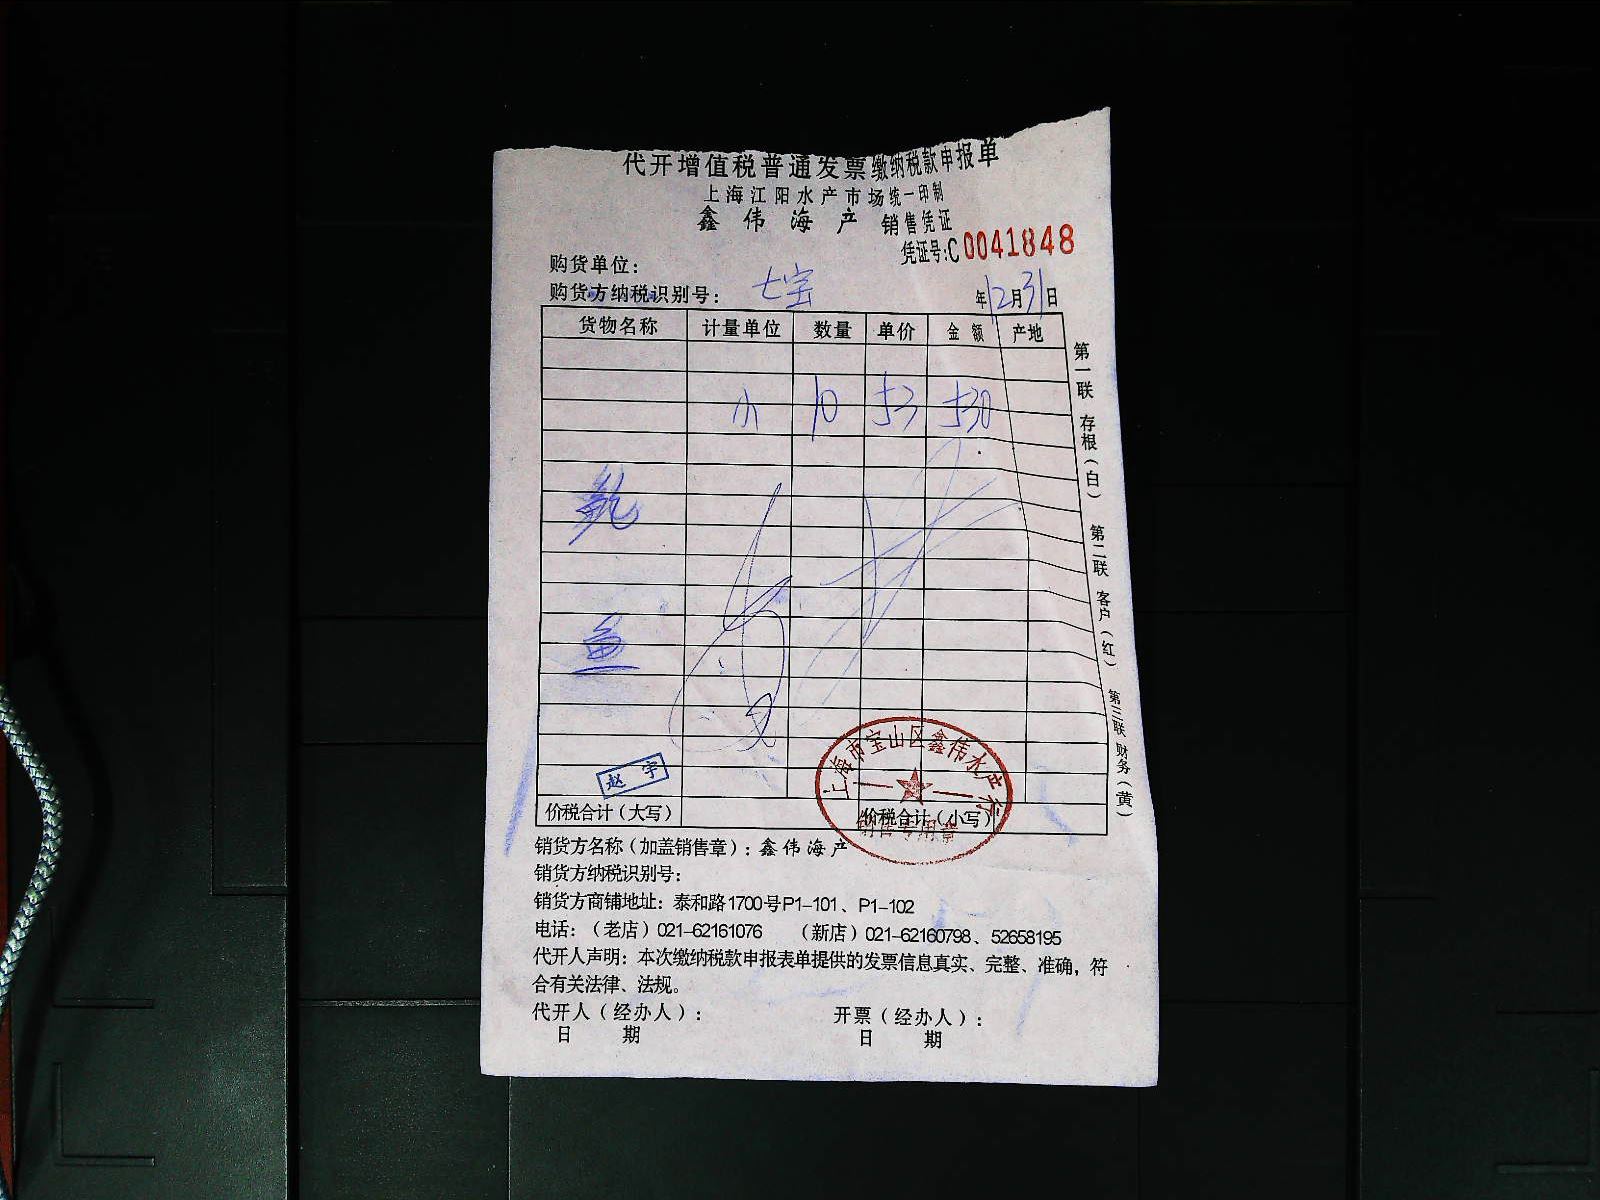 代开增值税普通发票缴纳税款申报单
上海江阳水产市场统一印制
鑫伟海产 销售凭证
凭证号:C0041848
购货单位：
购货方纳税识别号： 七宝 年12月31日
货物名称 计量单位 数量 单价 金额 产地
小 10 53 530
鲍
鱼
赵宇
上海市宝山区鑫伟水产行
销售专用章
价税合计（大写） 价税合计（小写）
销货方名称（加盖销售章）：鑫伟海产
销货方纳税识别号：
销货方商铺地址：泰和路1700号P1-101、P1-102
电话：（老店）021-62161076 （新店）021-62160798、52658195
代开人声明：本次缴纳税款申报表单提供的发票信息真实、完整、准确，符
合有关法律、法规。
代开人（经办人）： 开票（经办人）：
日 期 日 期
第一联 存根（白） 第二联 客户（红） 第三联 财务（黄）